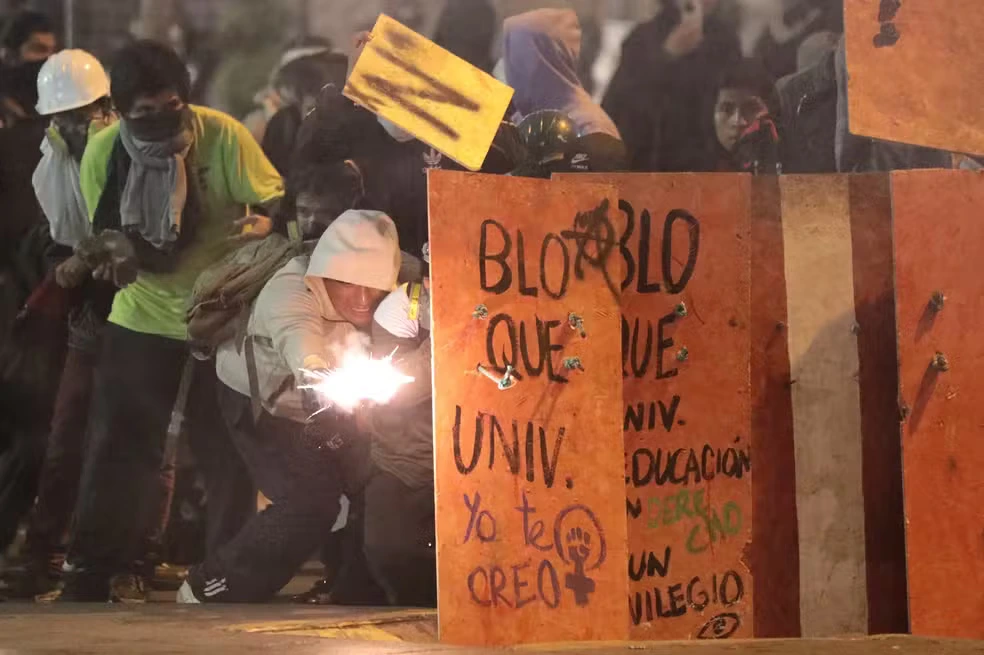 N
BLO
QUE
UNIV.
Yo te
CREO
BLO
QUE
UNIV.
EDUCACIÓN
N
DERE
CHO
UN
VILEGIO